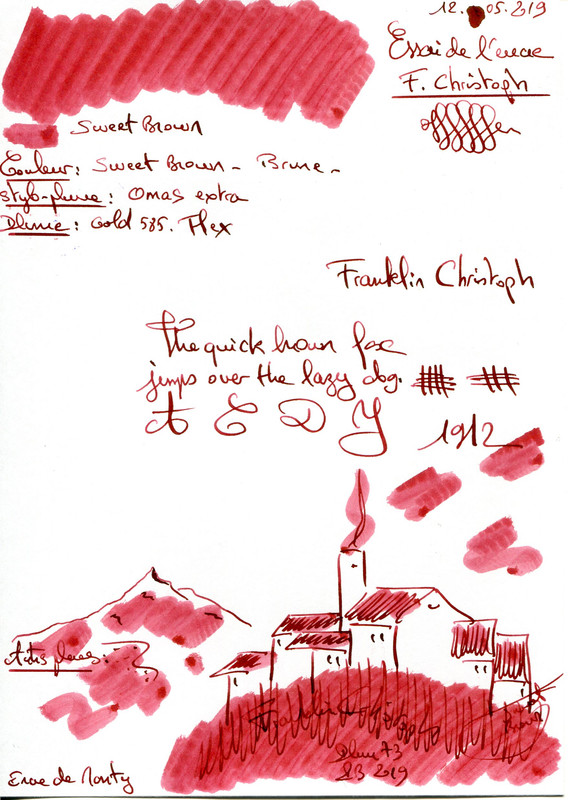 12. 05. 2019
Essai de l'encre
F. Christoph
Sweet Brown
Couleur: Sweet Brown - Brune -
stylo-plume: Omas extra
Plume: Gold 585. Flex
Franklin Christoph
The quick brown fox
jumps over the lazy dog.
A E D Y 1912
Franklin Christoph
Plume 73
2019